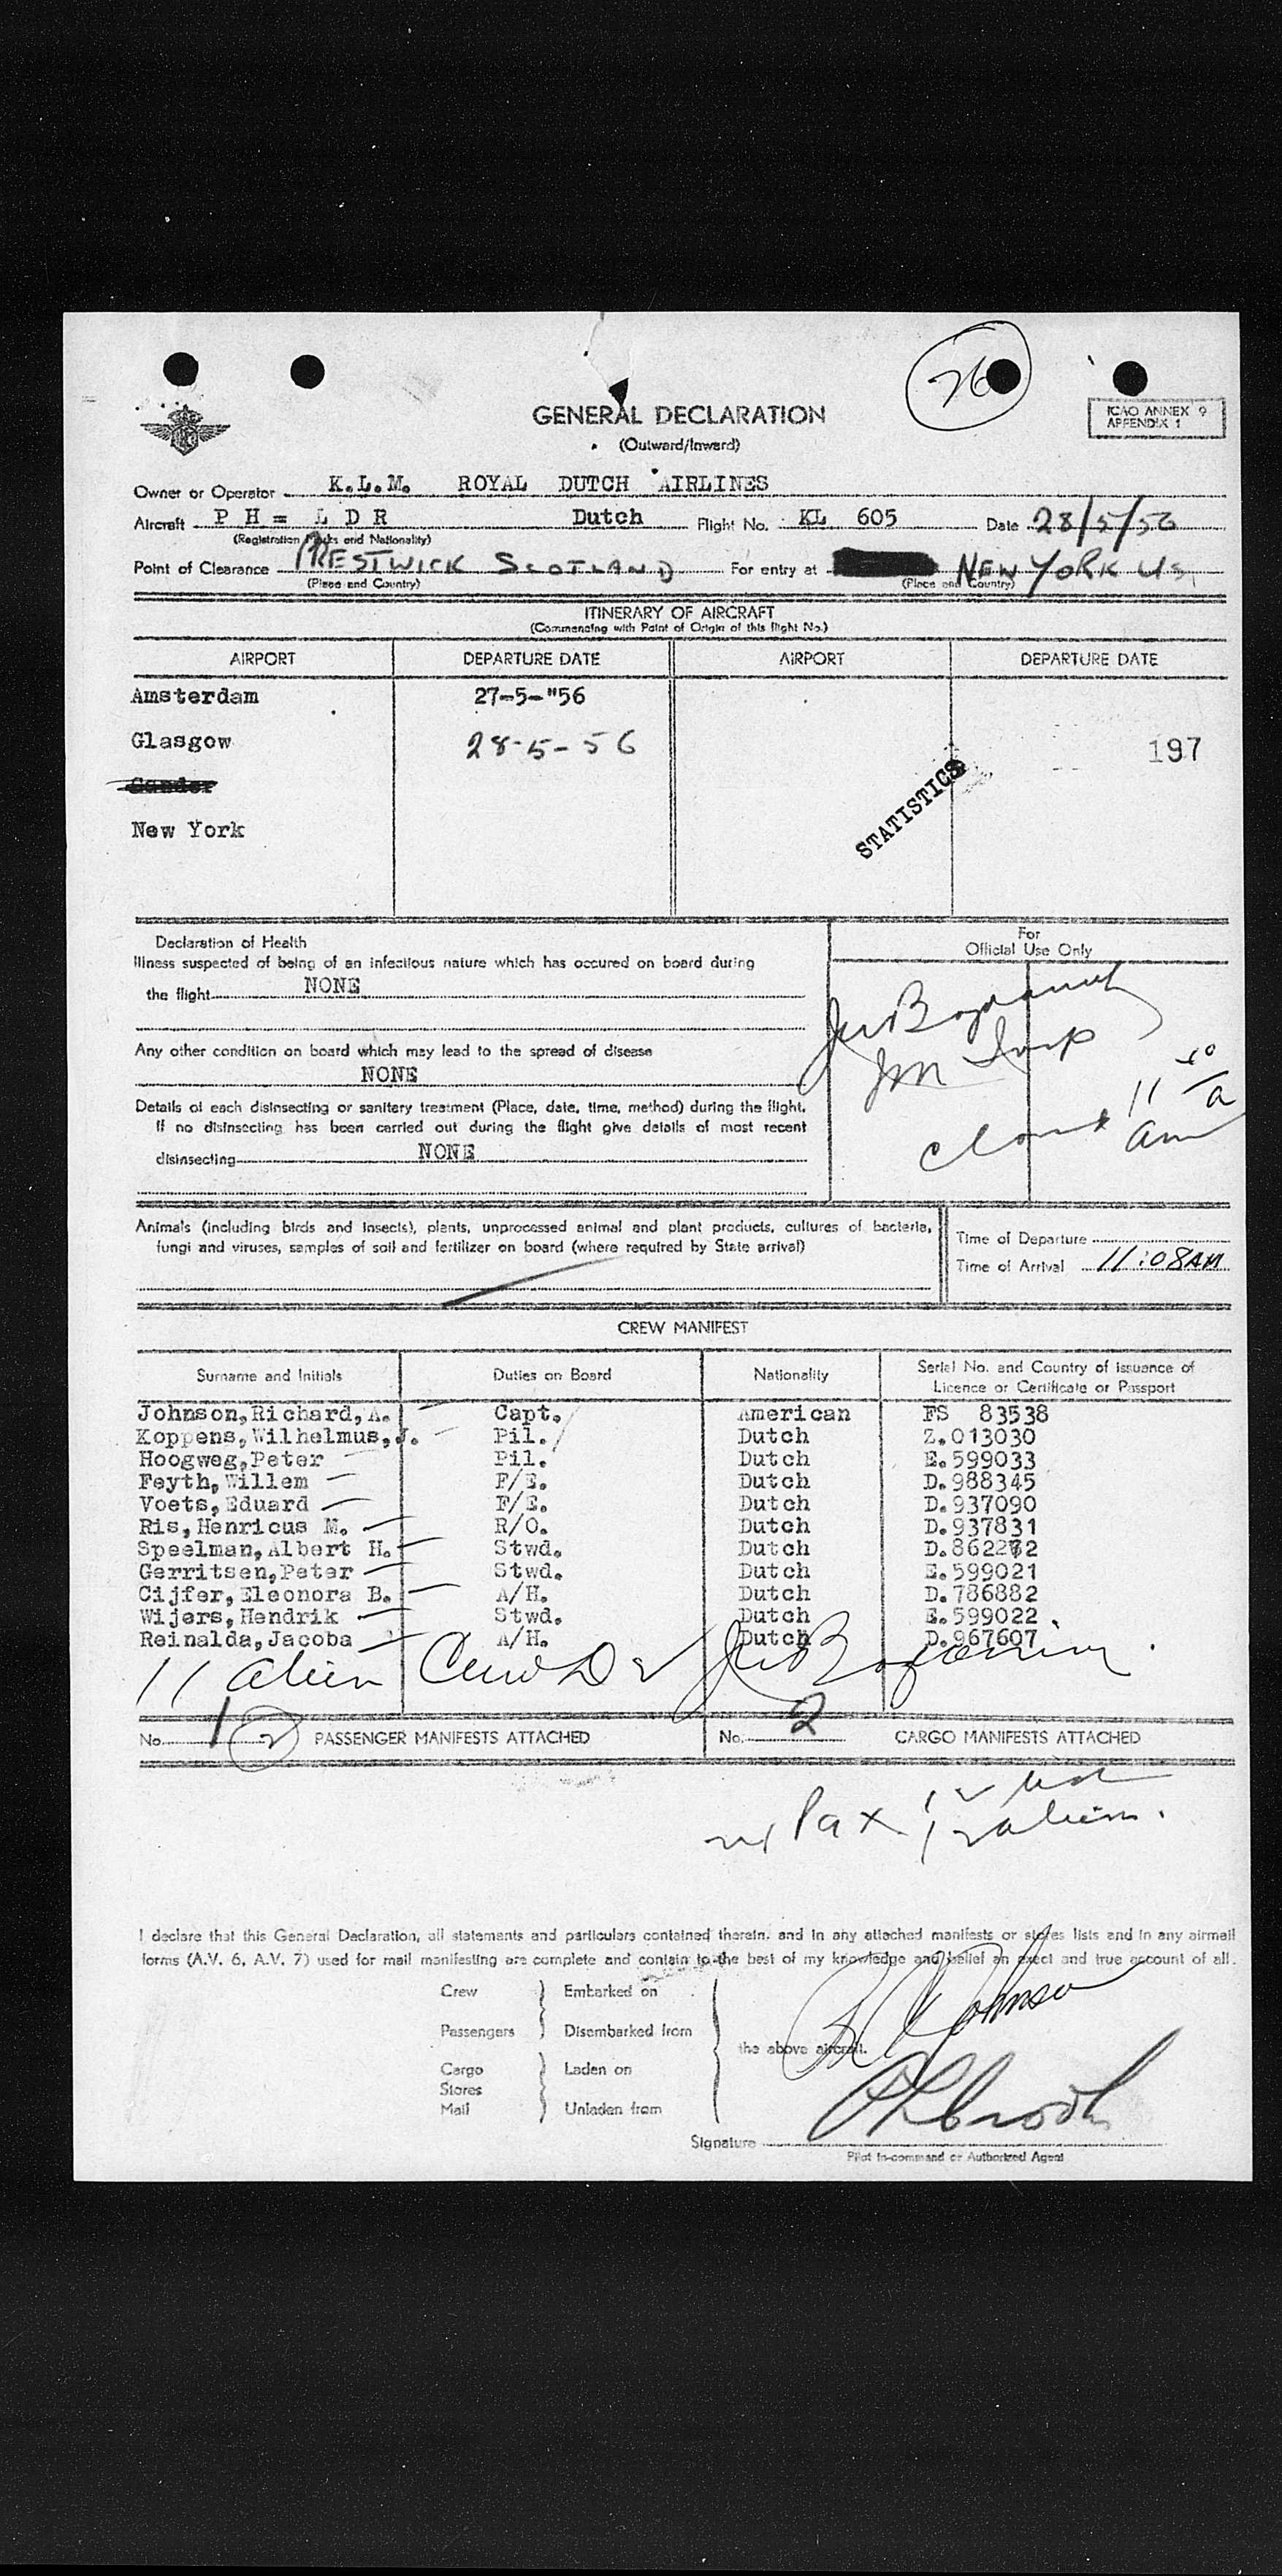 26
GENERAL DECLARATION
(Outward/Inward)
ICAO ANNEX 9
APPENDIX 1
Owner or Operator K.L.M. ROYAL DUTCH AIRLINES
Aircraft P H = L D R Dutch Flight No. KL 605 Date 28/5/56
(Registration Marks and Nationality)
Point of Clearance PRESTWICK SCOTLAND For entry at NEW YORK US
(Place and Country) (Place and Country)
ITINERARY OF AIRCRAFT
(Commencing with Point of Origin of this flight No.)
AIRPORT DEPARTURE DATE AIRPORT DEPARTURE DATE
Amsterdam 27-5-"56
Glasgow 28-5-56 197
Gander
STATISTICS
New York
For
Official Use Only
Declaration of Health
Illness suspected of being of an infectious nature which has occured on board during
the flight NONE
Any other condition on board which may lead to the spread of disease
NONE
Details of each disinsecting or sanitary treatment (Place, date, time, method) during the flight.
If no disinsecting has been carried out during the flight give details of most recent
disinsecting NONE
11
am
Animals (including birds and insects), plants, unprocessed animal and plant products, cultures of bacteria,
fungi and viruses, samples of soil and fertilizer on board (where required by State arrival)
Time of Departure
Time of Arrival 11:08AM
CREW MANIFEST
Surname and Initials Duties on Board Nationality Serial No. and Country of issuance of
Licence or Certificate or Passport
Johnson,Richard,A. Capt. American FS 83538
Koppens,Wilhelmus,J. Pil. Dutch Z.013030
Hoogweg,Peter Pil. Dutch E.599033
Feyth,Willem F/E. Dutch D.988345
Voets,Eduard F/E. Dutch D.937090
Ris,Henricus M. R/O. Dutch D.937831
Speelman,Albert H. Stwd. Dutch D.862272
Gerritsen,Peter Stwd. Dutch E.599021
Cijfer,Eleonora B. A/H. Dutch D.786882
Wijers,Hendrik Stwd. Dutch E.599022
Reinalda,Jacoba A/H. Dutch D.967607
11 alien Crew
No. 1 2 PASSENGER MANIFESTS ATTACHED No. 2 CARGO MANIFESTS ATTACHED
Pax
alien.
I declare that this General Declaration, all statements and particulars contained therein, and in any attached manifests or stores lists and in any airmail
forms (A.V. 6, A.V. 7) used for mail manifesting are complete and contain to the best of my knowledge and belief an exact and true account of all.
Crew Embarked on
Passengers Disembarked from
the above aircraft.
Cargo Laden on
Stores
Mail Unladen from
R A Johnson
Signature
Pilot in-command or Authorized Agent